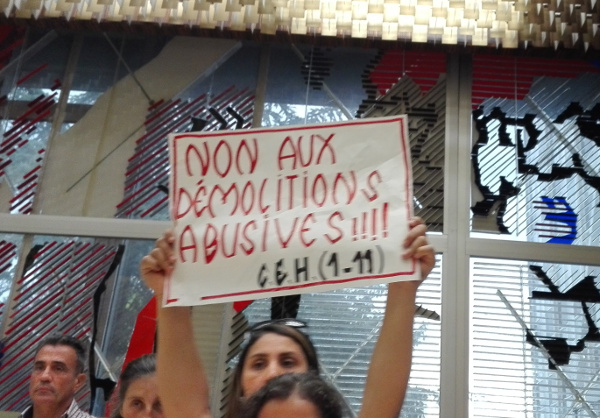 NON AUX
DÉMOLITIONS
ABUSIVES!!!!
C.E.H. (1-11)